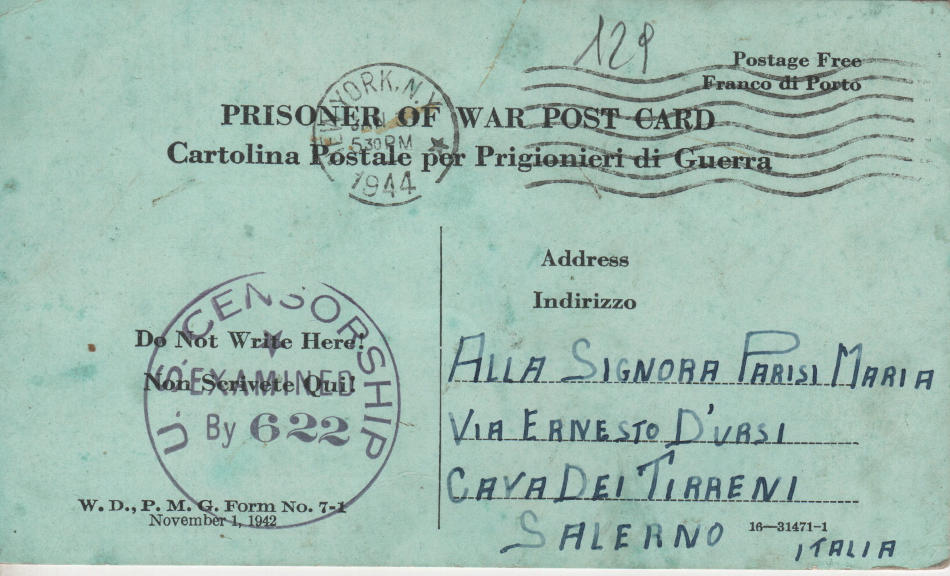 129
Postage Free
Franco di Porto
NEW YORK, N.Y.
530 PM
1944
PRISONER OF WAR POST CARD
Cartolina Postale per Prigionieri di Guerra
Address
Indirizzo
U.S. CENSORSHIP
EXAMINED
By 622
Do Not Write Here!
Non Scrivete Qui!
ALLA SIGNORA PARISI MARIA
VIA ERNESTO D'URSI
CAVA DEI TIRRENI
SALERNO
ITALIA
W. D., P. M. G. Form No. 7-1
November 1, 1942
16—31471-1